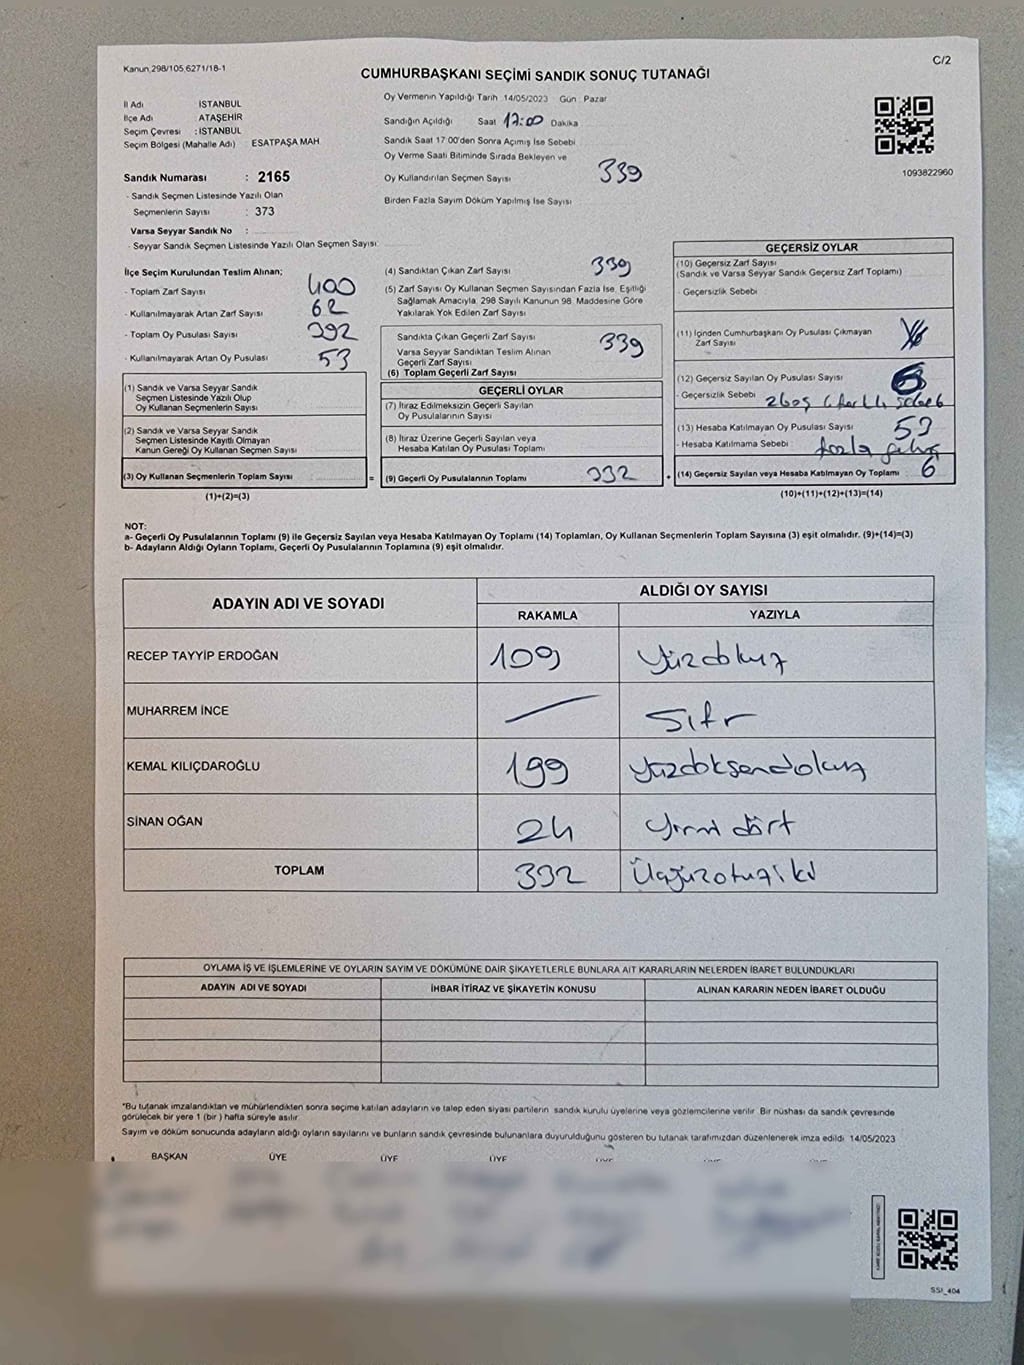 Kanun 298/105,6271/18-1
C/2
CUMHURBAŞKANI SEÇİMİ SANDIK SONUÇ TUTANAĞI
İl Adı İSTANBUL
İlçe Adı ATAŞEHİR
Seçim Çevresi : İSTANBUL
Seçim Bölgesi (Mahalle Adı) ESATPAŞA MAH
Sandık Numarası : 2165
- Sandık Seçmen Listesinde Yazılı Olan
Seçmenlerin Sayısı : 373
Varsa Seyyar Sandık No :
- Seyyar Sandık Seçmen Listesinde Yazılı Olan Seçmen Sayısı:
Oy Vermenin Yapıldığı Tarih : 14/05/2023 Gün : Pazar
Sandığın Açıldığı Saat 17:00 Dakika
Sandık Saat 17:00'den Sonra Açımış İse Sebebi
Oy Verme Saati Bitiminde Sırada Bekleyen ve
Oy Kullandırılan Seçmen Sayısı 339
Birden Fazla Sayım Döküm Yapılmış İse Sayısı
1093822960
İlçe Seçim Kurulundan Teslim Alınan;
- Toplam Zarf Sayısı 400
- Kullanılmayarak Artan Zarf Sayısı 62
- Toplam Oy Pusulası Sayısı 392
- Kullanılmayarak Artan Oy Pusulası 53
(1) Sandık ve Varsa Seyyar Sandık
Seçmen Listesinde Yazılı Olup
Oy Kullanan Seçmenlerin Sayısı
(2) Sandık ve Varsa Seyyar Sandık
Seçmen Listesinde Kayıtlı Olmayan
Kanun Gereği Oy Kullanan Seçmen Sayısı
(3) Oy Kullanan Seçmenlerin Toplam Sayısı =
(1)+(2)=(3)
(4) Sandıktan Çıkan Zarf Sayısı 339
(5) Zarf Sayısı Oy Kullanan Seçmen Sayısından Fazla İse, Eşitliği
Sağlamak Amacıyla, 298 Sayılı Kanunun 98. Maddesine Göre
Yakılarak Yok Edilen Zarf Sayısı
Sandıkta Çıkan Geçerli Zarf Sayısı 339
Varsa Seyyar Sandıktan Teslim Alınan
Geçerli Zarf Sayısı
(6) Toplam Geçerli Zarf Sayısı
GEÇERLİ OYLAR
(7) İtiraz Edilmeksizin Geçerli Sayılan
Oy Pusulalarının Sayısı
(8) İtiraz Üzerine Geçerli Sayılan veya
Hesaba Katılan Oy Pusulası Toplamı
(9) Geçerli Oy Pusulalarının Toplamı 332 +
GEÇERSİZ OYLAR
(10) Geçersiz Zarf Sayısı
(Sandık ve Varsa Seyyar Sandık Geçersiz Zarf Toplamı)
- Geçersizlik Sebebi :
(11) İçinden Cumhurbaşkanı Oy Pusulası Çıkmayan
Zarf Sayısı
(12) Geçersiz Sayılan Oy Pusulası Sayısı
- Geçersizlik Sebebi
(13) Hesaba Katılmayan Oy Pusulası Sayısı 53
- Hesaba Katılmama Sebebi : fazla
(14) Geçersiz Sayılan veya Hesaba Katılmayan Oy Toplamı : 6
(10)+(11)+(12)+(13)=(14)
NOT:
a- Geçerli Oy Pusulalarının Toplamı (9) ile Geçersiz Sayılan veya Hesaba Katılmayan Oy Toplamı (14) Toplamları, Oy Kullanan Seçmenlerin Toplam Sayısına (3) eşit olmalıdır. (9)+(14)=(3)
b- Adayların Aldığı Oyların Toplamı, Geçerli Oy Pusulalarının Toplamına (9) eşit olmalıdır.
ADAYIN ADI VE SOYADI
ALDIĞI OY SAYISI
RAKAMLA YAZIYLA
RECEP TAYYİP ERDOĞAN 109 Yüzdokuz
MUHARREM İNCE — Sıfır
KEMAL KILIÇDAROĞLU 199 Yüzdoksandokuz
SİNAN OĞAN 24 Yirmi dört
TOPLAM 332 Üçyüzotuziki
OYLAMA İŞ VE İŞLEMLERİNE VE OYLARIN SAYIM VE DÖKÜMÜNE DAİR ŞİKAYETLERLE BUNLARA AİT KARARLARIN NELERDEN İBARET BULUNDUKLARI
ADAYIN ADI VE SOYADI İHBAR İTİRAZ VE ŞİKAYETİN KONUSU ALINAN KARARIN NEDEN İBARET OLDUĞU
*Bu tutanak imzalandıktan ve mühürlendikten sonra seçime katılan adayların ve talep eden siyasi partilerin sandık kurulu üyelerine veya gözlemcilerine verilir. Bir nüshası da sandık çevresinde
görülecek bir yere 1 (bir ) hafta süreyle asılır.
Sayım ve döküm sonucunda adayların aldığı oyların sayılarını ve bunların sandık çevresinde bulunanlara duyurulduğunu gösteren bu tutanak tarafımızdan düzenlenerek imza edildi 14/05/2023
BAŞKAN ÜYE ÜYE ÜYE
SSI_404